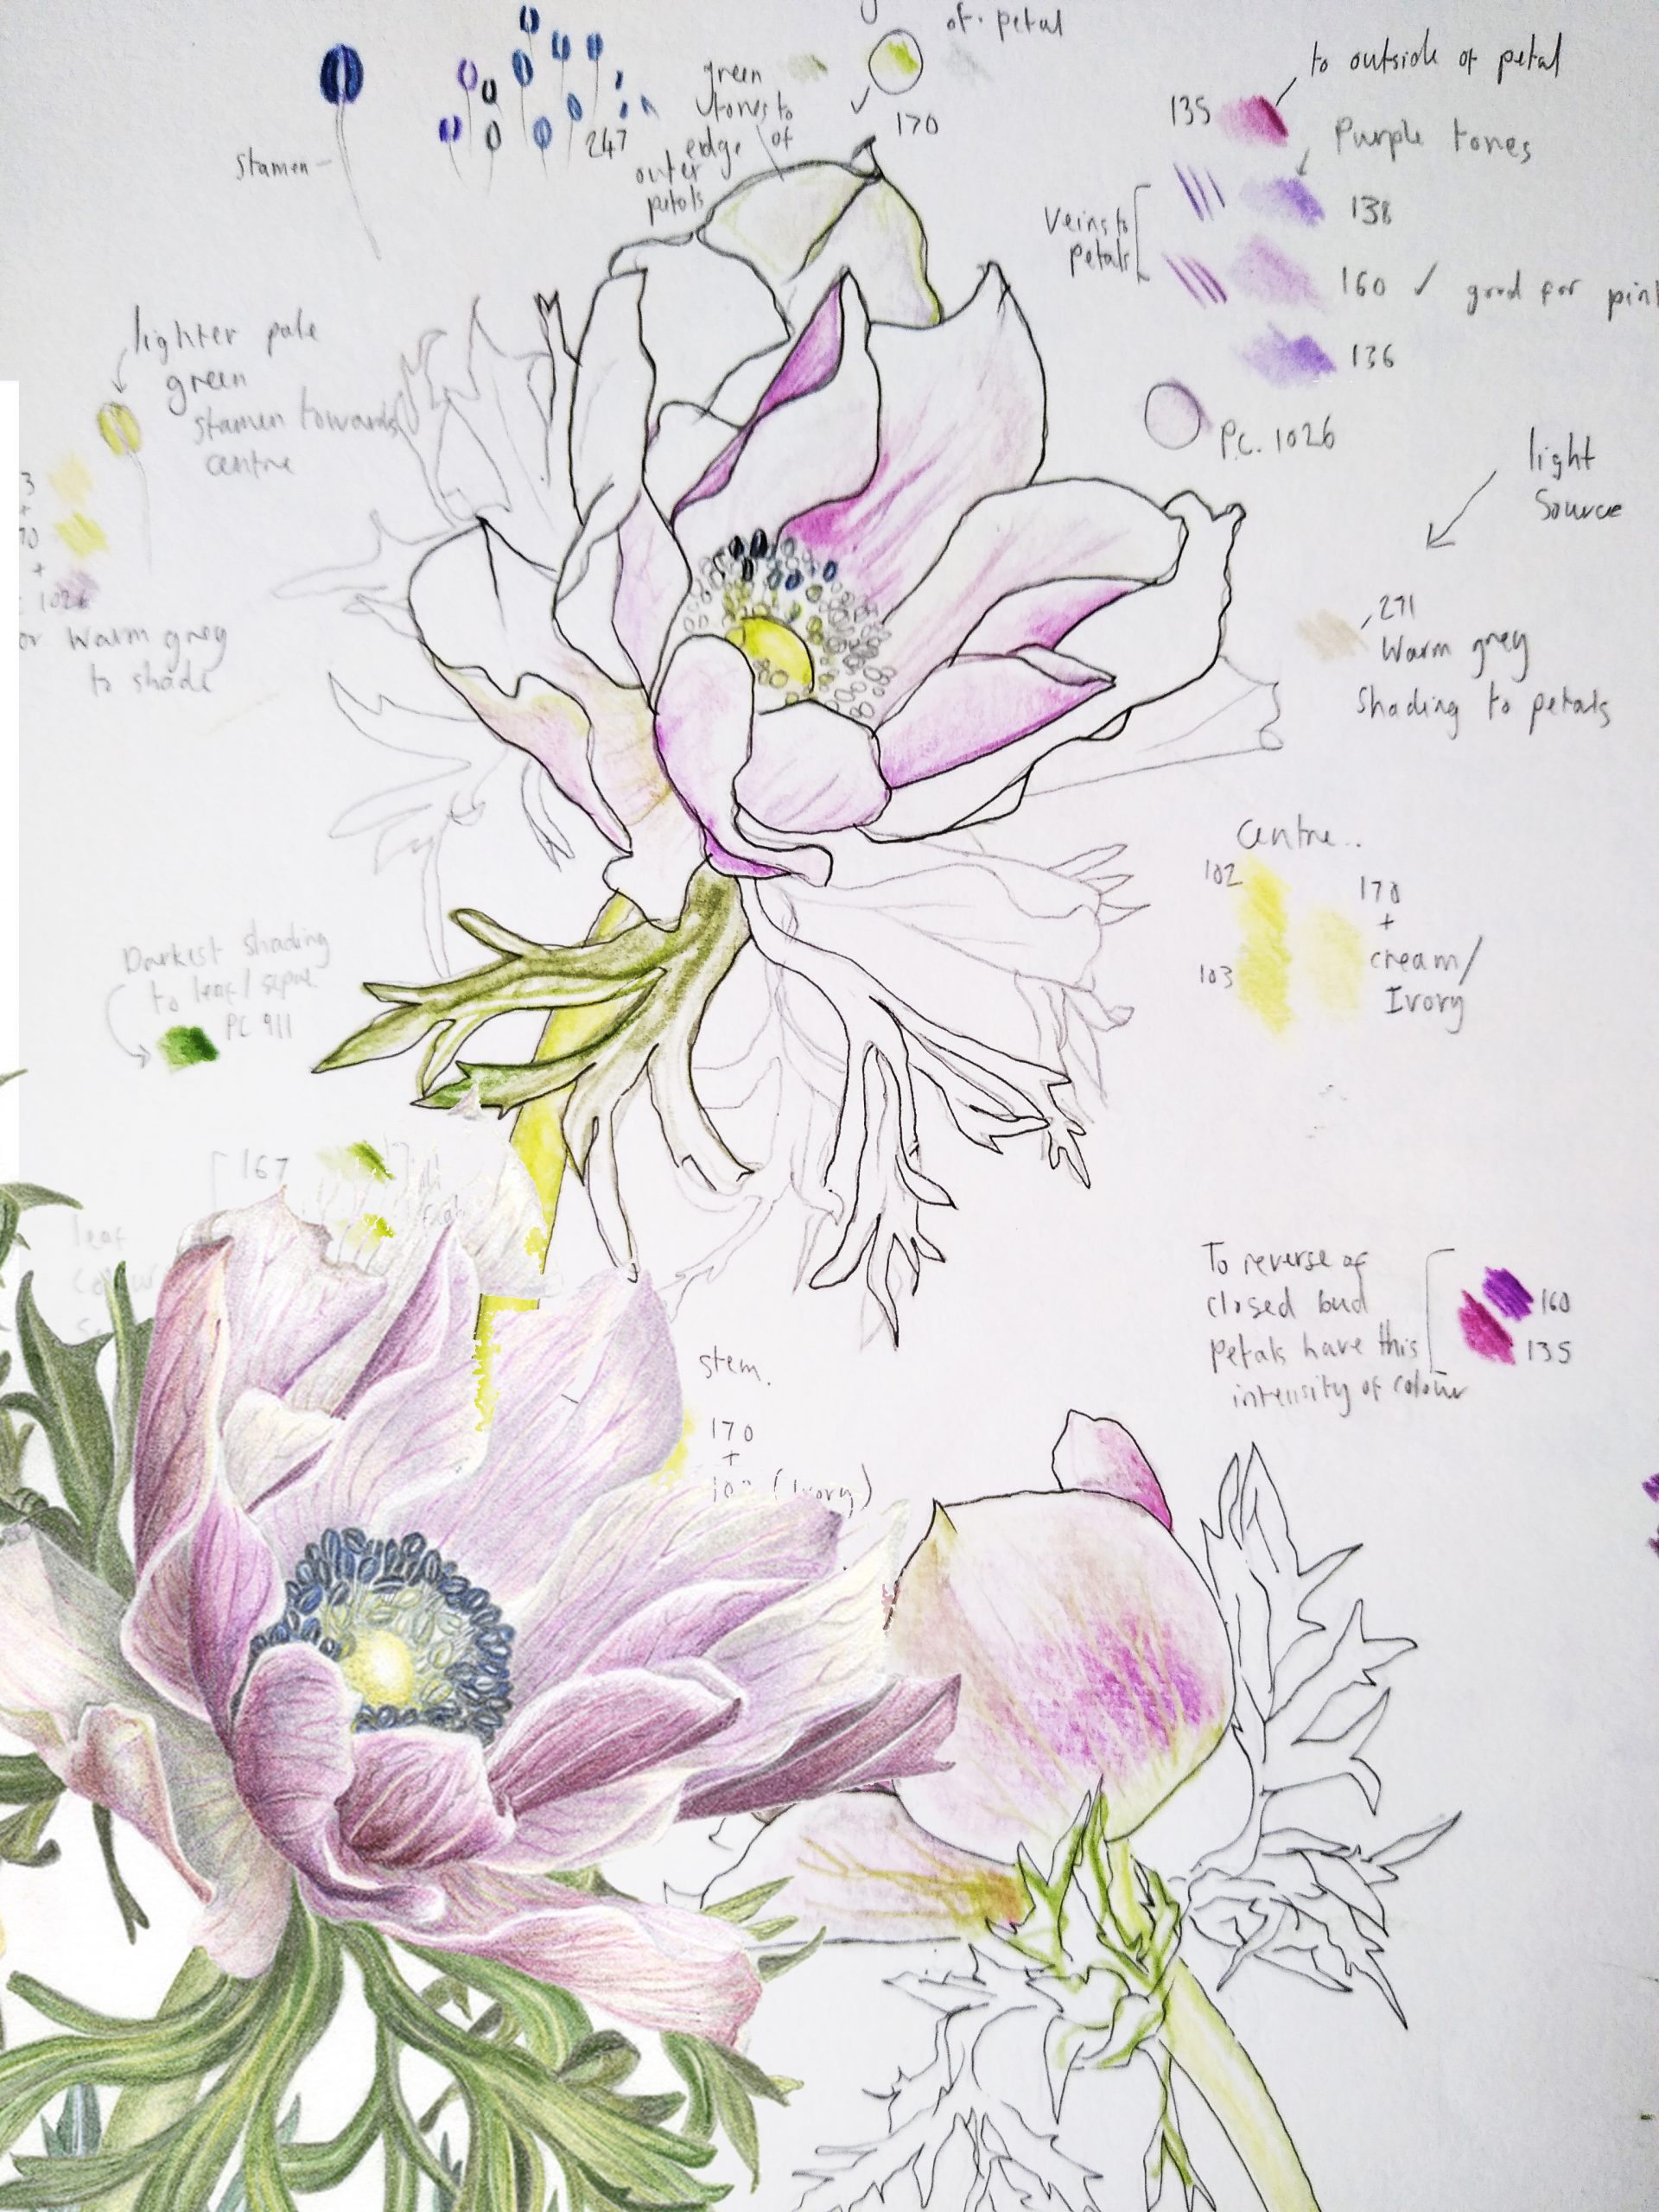 of. petal
170
green
tones to
edge of
outer
petals
stamen
247
to outside of petal
135
Purple tones
138
Veins to
petals
160 ✓ good for pin
136
P.C. 1026
light
Source
lighter pale
green
stamen towards
centre
3
+
70
+
1026
or warm grey
to shade
271
Warm grey
shading to petals
Centre..
102
103
170
+
cream/
Ivory
Darkest shading
to leaf/sepal
PC 911
167
leaf
colour
To reverse of
closed bud
petals have this
intensity of colour
160
135
stem.
170
+
(Ivory)